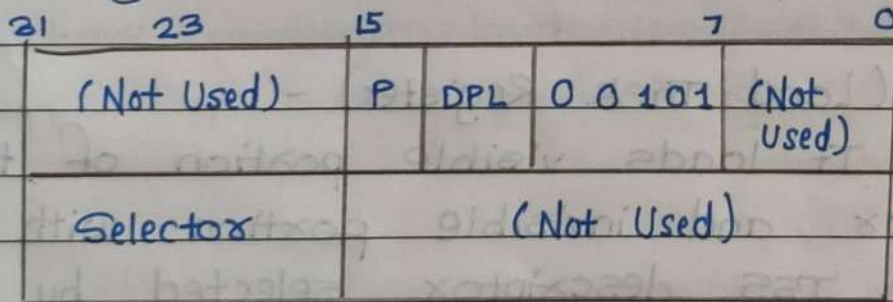 31 23 15 7 0
(Not Used) P DPL 0 0 1 0 1 (Not Used)
Selector (Not Used)